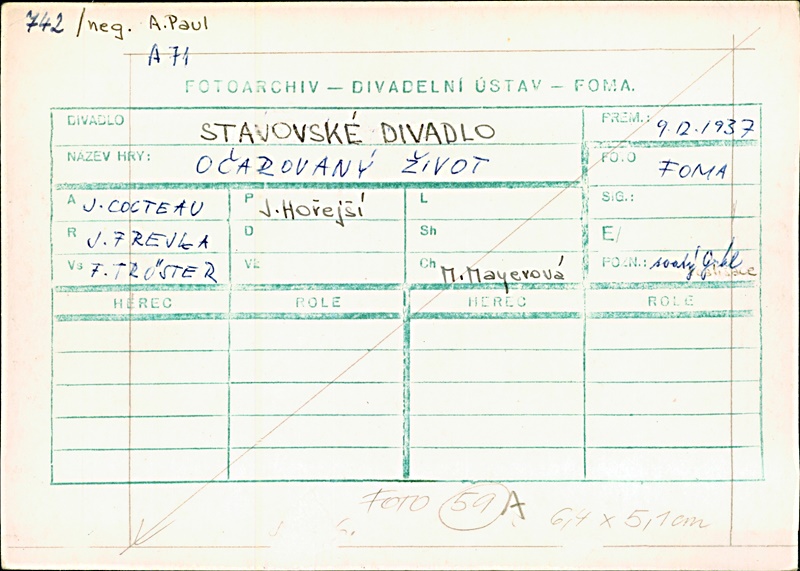 742 /neg. A. Paul
A 71
FOTOARCHIV — DIVADELNÍ ÚSTAV — FOMA.
DIVADLO STAVOVSKÉ DIVADLO PREM.: 9.12.1937
NÁZEV HRY: OČAROVANÝ ŽIVOT FOTO FOMA
A J. COCTEAU P J. Hořejší L SIG.:
R J. FREJKA D Sh E/
Vs F. TRÖSTER VE Ch M. Mayerová POZN.: svatý Grál
HEREC ROLE HEREC ROLE
FOTO 59 A 6,4 x 5,1 cm